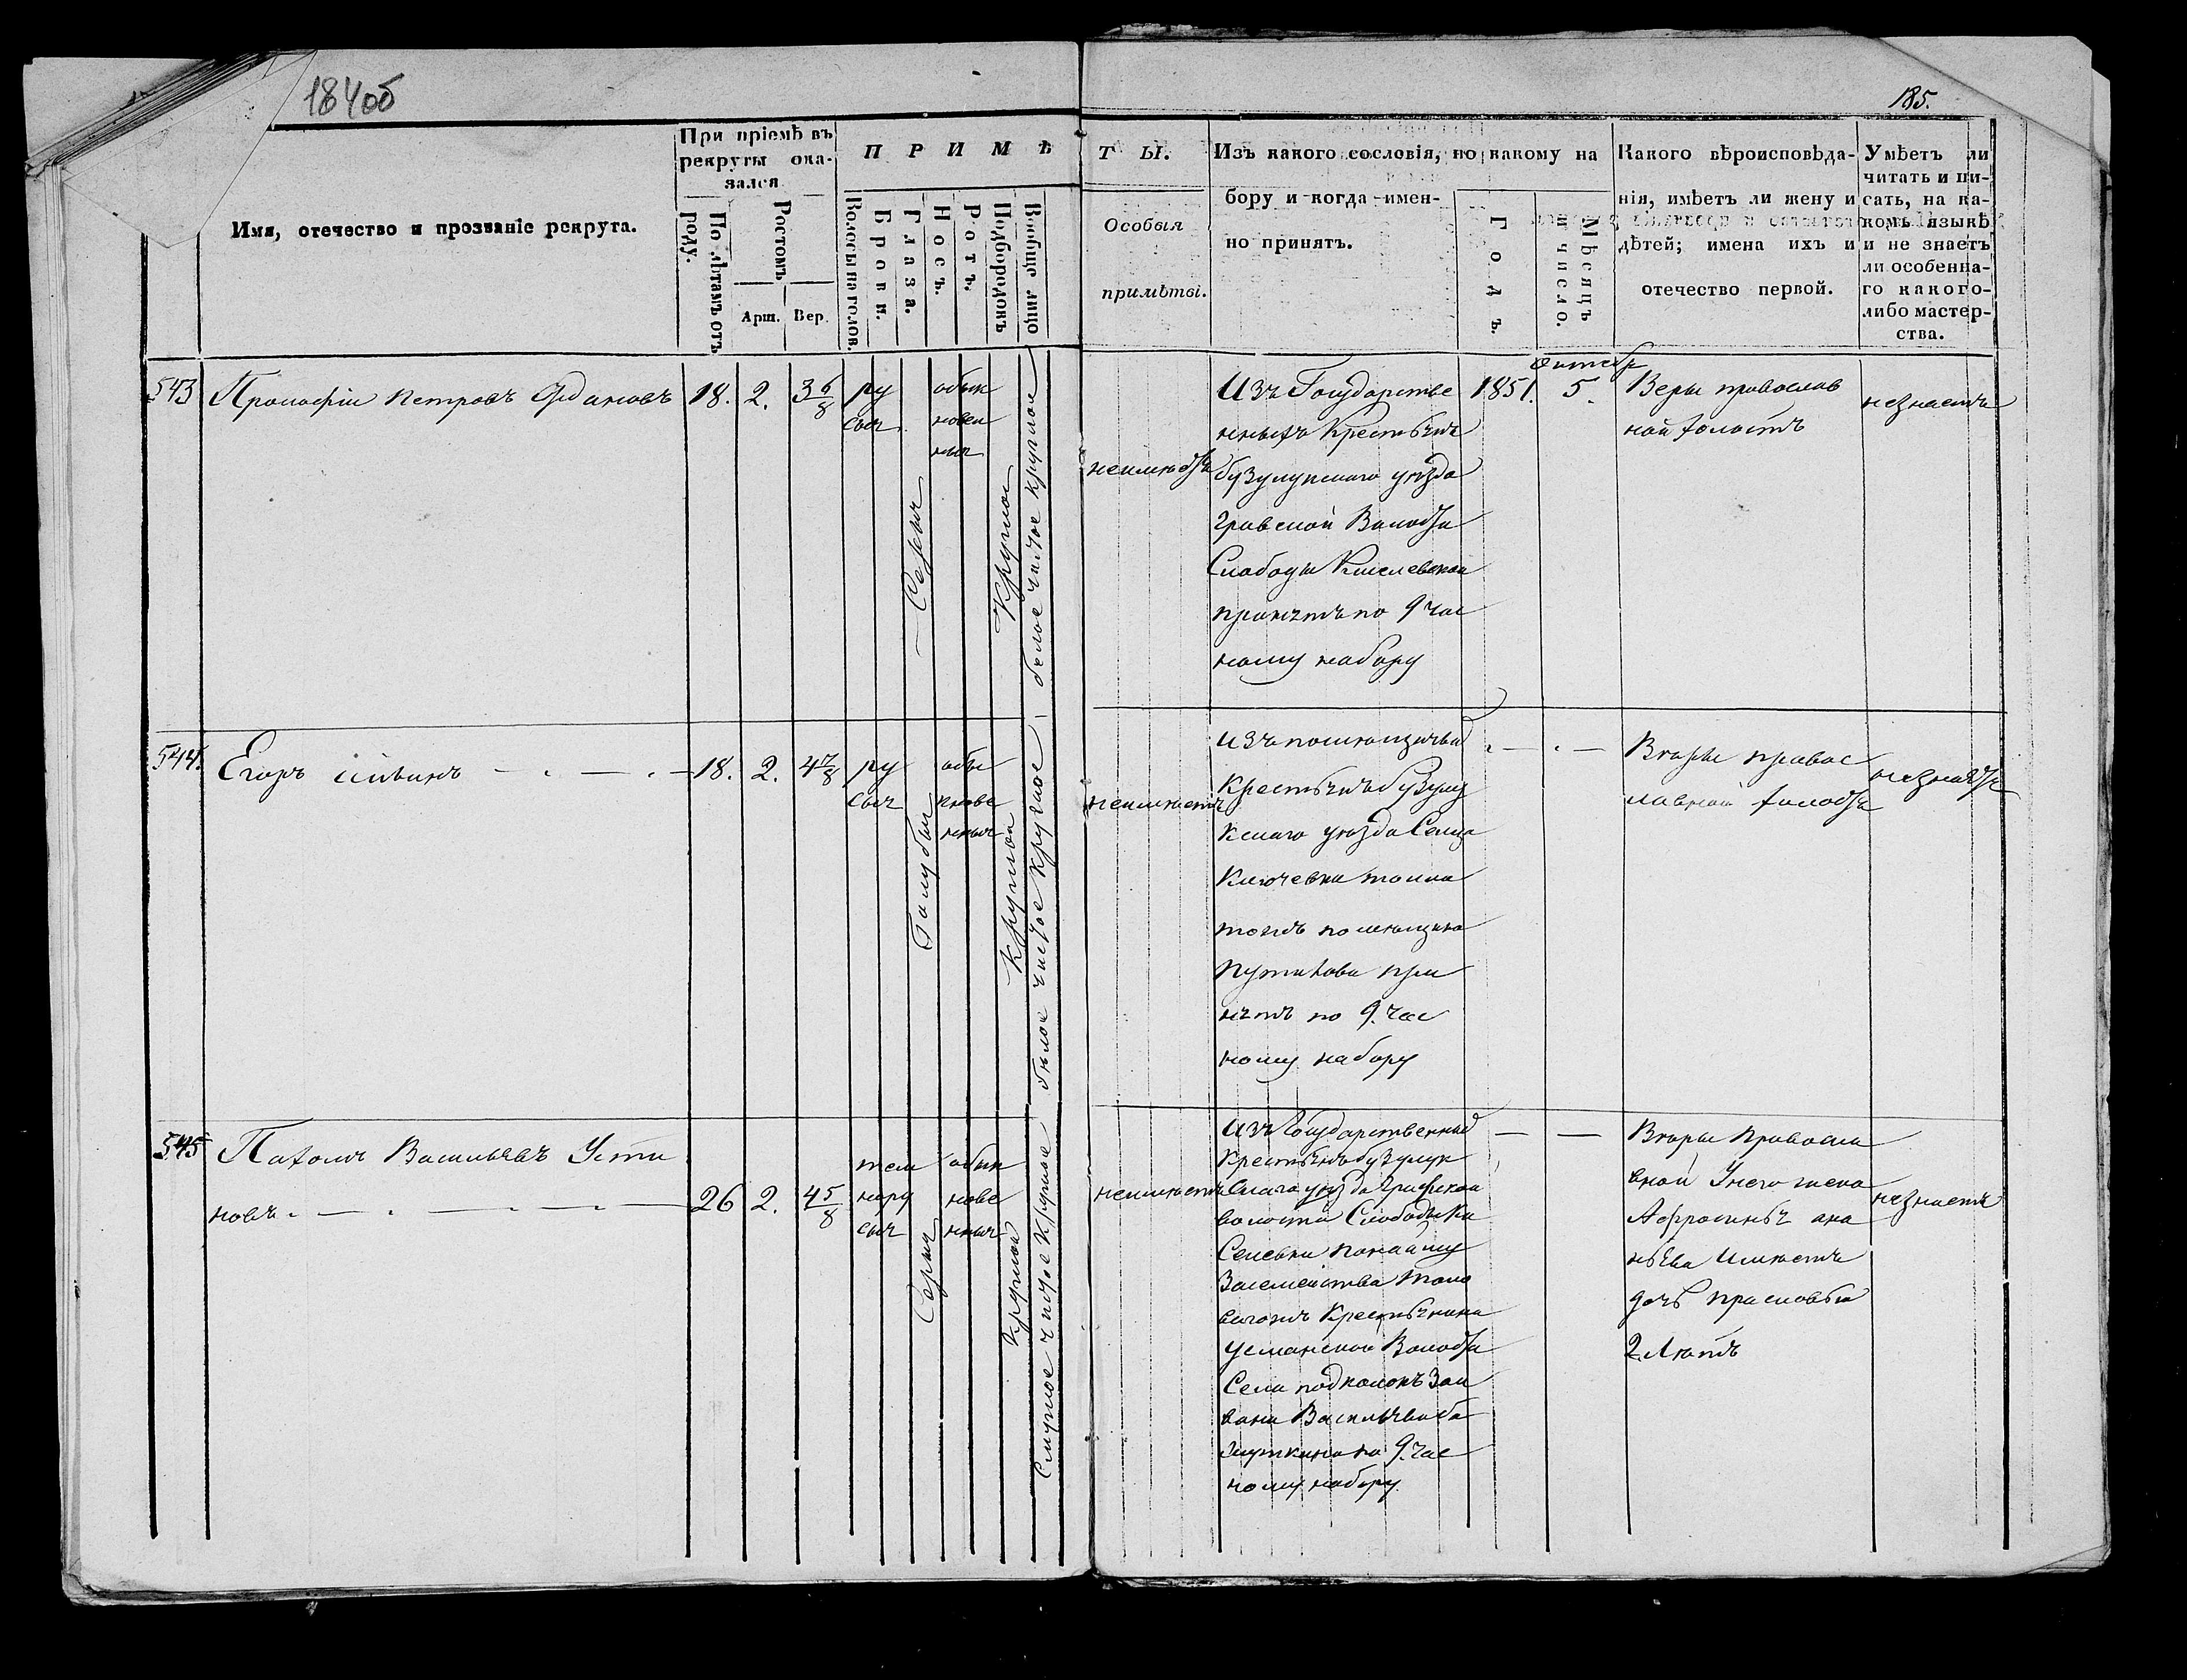 184об
185.
Имя, отечество и прозваніе рекрута.
При пріемѣ въ
рекруты ока-
зался
По лѣтамъ отъ
роду.
Ростомъ
Арш. Вер.
ПРИМѢ
Волосы на голов.
Брови.
Глаза.
Носъ.
Ротъ.
Подбородокъ
Вообще лицо
ТЫ.
Особыя
примѣты.
Изъ какого сословія, по какому на
бору и когда имен-
но принятъ.
Годъ.
Мѣсяцъ
и число.
Какого вѣроисповѣда-
нія, имѣетъ ли жену и
дѣтей; имена ихъ и
отечество первой.
Умѣетъ ли
читать и пи-
сать, на ка-
комъ языкѣ
и не знаетъ
ли особенна-
го какого-
либо мастер-
ства.
543 Прокофій Петровъ
18. 2. 3 6/8
ру
сыя
Серыя
обык
новен
ныя
Круглой
белое чистое круглое
неимеетъ
Изъ Государстве
нныхъ Крестьянъ
бузулукскаго уезда
Волости
Слободы Киселевской
принятъ по 9 час
ному набору
1851. Октябр
5.
Веры православ
ной холостъ
незнаетъ
544. Егоръ
18. 2. 4 7/8
ру
сыя
Голубыя
обы
кнове
нныя
Круглой
белое чистое круглое
неимеетъ
Изъ помещичьих
Крестьянъ бузулу
кскаго уезда Селца
Ключевки
помещика
при
нятъ по 9. час
ному набору
Веры правос
лавной холостъ
незнаетъ
545 Пахомъ Васильевъ Усти
новъ
26 2. 4 5/8
тем
нору
сыя
Серыя
обык
нове
нныя
Круглой
Смуглое чистое Круглое
неимеетъ
Изъ Государственных
Крестьянъ бузулук
скаго уезда
волости Слободы Ки
селевки понайму
Засемейства
Крестьянина
Волости
Села подколокъ Зои
вана Васильева
по 9. час
ному набору
Веры Правосла
вной Унего жена
Афросинья ана
ньева имеетъ
дочь прасковью
2 Летъ
незнаетъ